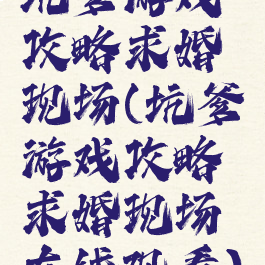 坑爹游戏
攻略求婚
现场(坑爹
游戏攻略
求婚现场
在线观看)